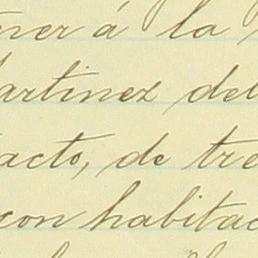 ner á la
artinez del
acto, de tre
con habitac